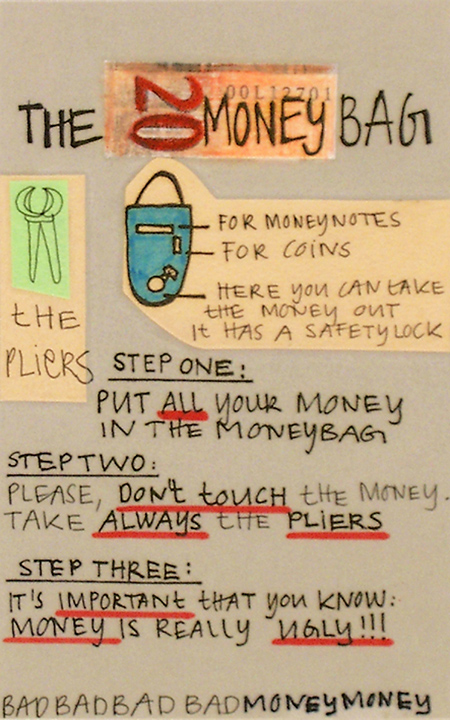 THE 20 MONEY BAG
00L12701
FOR MONEYNOTES
FOR COINS
HERE YOU CAN TAKE
THE MONEY OUT
IT HAS A SAFETYLOCK
THE
PLIERS
STEP ONE:
PUT ALL YOUR MONEY
IN THE MONEYBAG
STEP TWO:
PLEASE, DON'T TOUCH THE MONEY.
TAKE ALWAYS THE PLIERS
STEP THREE:
IT'S IMPORTANT THAT YOU KNOW:
MONEY IS REALLY UGLY!!!
BADBADBAD BADMONEYMONEY